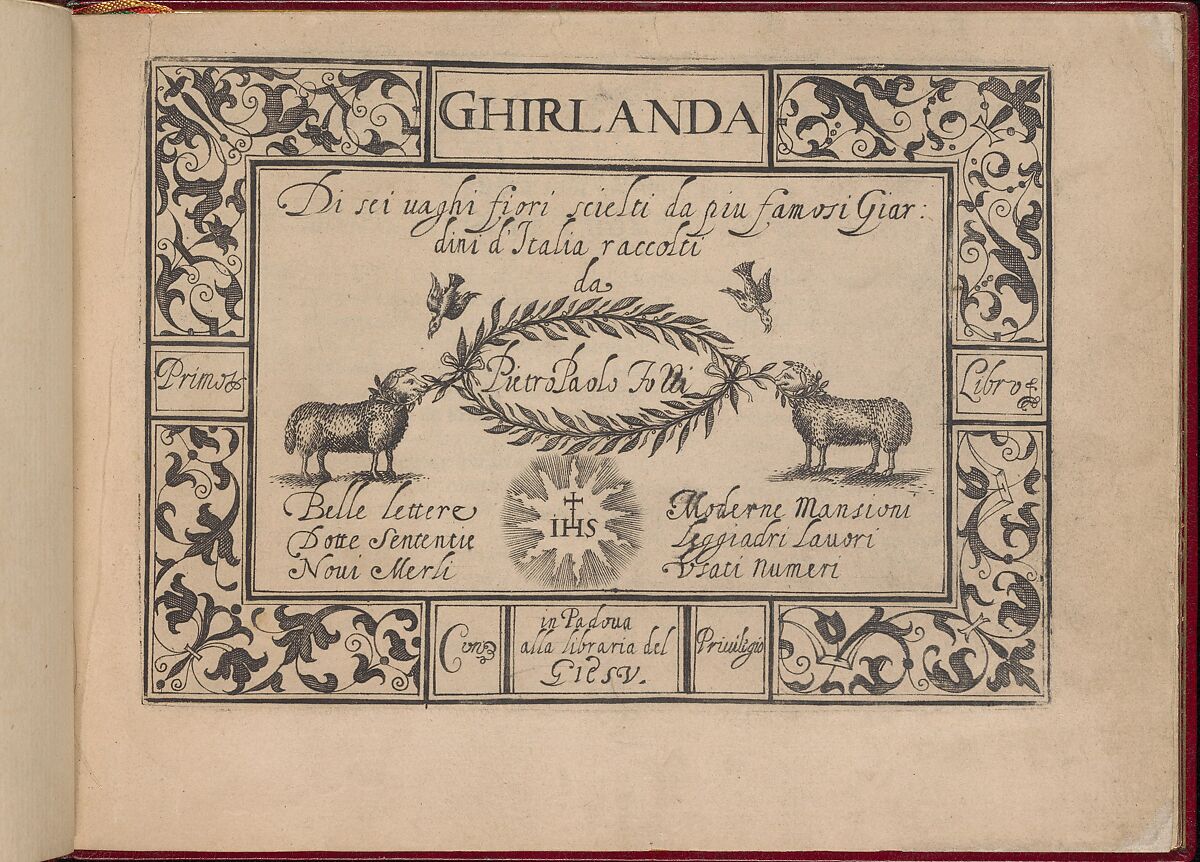 GHIRLANDA
Di sei uaghi fiori scielti da piu famosi Giar:
dini d'Italia raccolti
da
Pietro Paolo Tozzi
Primo
Libro
Belle lettere
Dotte Sententie
Noui Merli
IHS
Moderne Mansioni
leggiadri lauori
Vsati numeri
Con
in Padoua
alla libraria del
Giesv.
Priuilegio